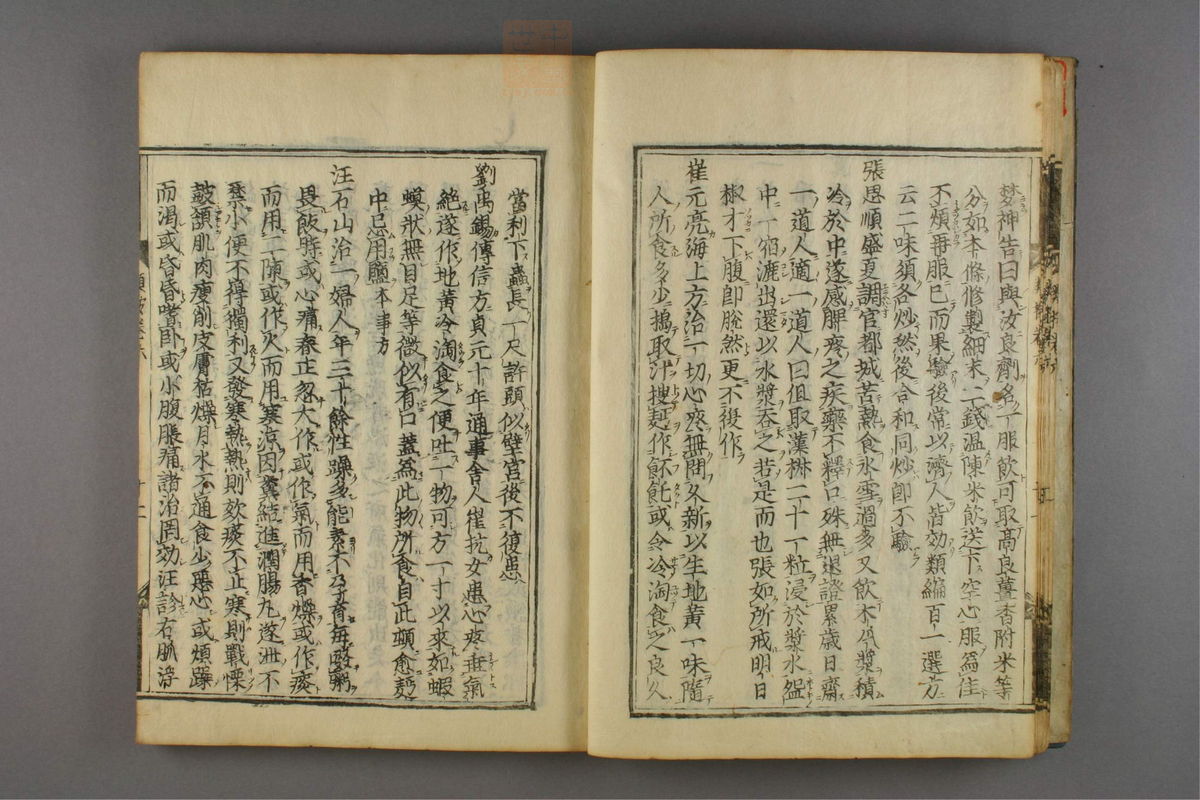 梦神告曰與汝良劑名一服飲可取髙良薑香附米等
分如本條修製細末二錢温陳米飲送下空心服爲佳
不煩再服已而果驗後常以濟人皆効類編百一選方
云二味須各炒然後合和同炒卽不驗
張思順盛夏調官都城苦熱食氷雪過多又飲木瓜漿積
冷於中遂感脾疼之疾藥不釋口殊無退證累歲日齋
一道人適一道人曰但取漢椒二十一粒浸於漿水盌
中一宿漉出還以水漿吞之若是而也張如所戒明日
椒才下腹卽脫然更不復作
崔元亮海上方治一切心疼無問久新以生地黃一味隨
人所食多少搗取汁搜麪作飥或令冷淘食之良久
當利下蟲長一尺許頭似壁宮後不復患
劉禹錫傳信方貞元十年通事舍人崔抗女患心疼垂氣
絕遂作地黃冷淘食之便吐一物可方一寸以來如蝦
蟆狀無目足等微似有口蓋爲此物所食自此頓愈麪
中忌用鹽本事方
汪石山治一婦人年三十餘性躁多能素不孕育每啜粥
畏飯時或心痛春正忽大作或作氣而用香燥或作痰
而用二陳或作火而用寒涼因糞結進潤腸丸遂泄不
禁小便不得獨利又發寒熱熱則咳痰不止寒則戰慄
皷頷肌肉瘦削皮膚枯燥月水不通食少惡心或煩躁
而渴或昏昏嗜卧或小腹脹痛諸治罔効汪診右脉浮